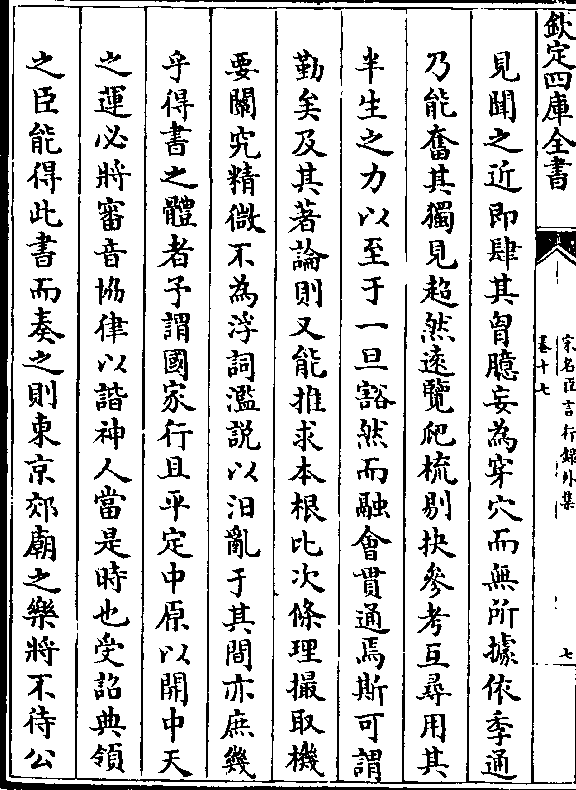 欽定四庫全書
宋名臣言行錄外集
卷十七
七
見聞之近即肆其胷臆妄為穿穴而無所據依季通
乃能奮其獨見超然遠覽爬梳剔抉參考互尋用其
半生之力以至于一旦豁然而融會貫通焉斯可謂
勤矣及其著論則又能推求本根比次條理撮取機
要闡究精微不為浮詞濫説以汨亂于其間亦庶幾
乎得書之體者予謂國家行且平定中原以開中天
之運必將審音協律以諧神人當是時也受詔典領
之臣能得此書而奏之則東京郊廟之樂將不待公